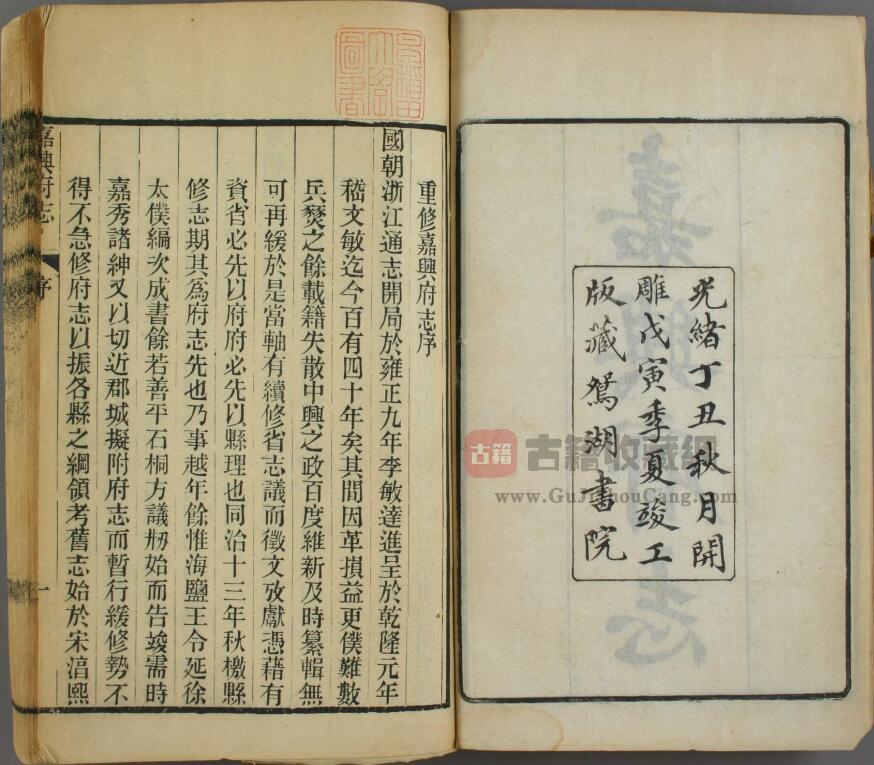 光緒丁丑秋月開
雕戊寅季夏竣工
版藏鴛湖書院
重修嘉興府志序
國朝浙江通志開局於雍正九年李敏達進呈於乾隆元年
嵇文敏迄今百有四十年矣其間因革損益更僕難數
兵燹之餘載籍失散中興之政百度維新及時纂輯無
可再緩於是當軸有續修省志議而徵文攷獻憑藉有
資省必先以府府必先以縣理也同治十三年秋檄縣
修志期其爲府志先也乃事越年餘惟海鹽王令延徐
太僕編次成書餘若善平石桐方議刱始而告竣需時
嘉秀諸紳又以切近郡城擬附府志而暫行緩修勢不
得不急修府志以振各縣之綱領考舊志始於宋淳熙
嘉興府志
序
一
古籍
古籍收藏網
www.GuJiShouCang.com